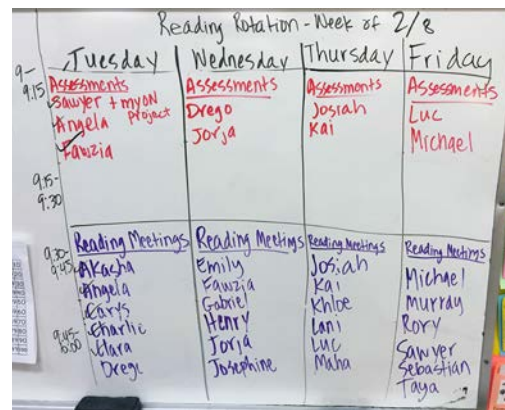 Reading Rotation - Week of 2/8
Tuesday
Wednesday
Thursday
Friday
9-
9:15
Assessments
Sawyer + myON
project
Angela
Fawzia
Assessments
Drego
Jorja
Assessments
Josiah
Kai
Assessments
Luc
Michael
9:15-
9:30
9:30-
9:45
Reading Meetings
Akasha
Angela
Carys
Charlie
Clara
Drego
9:45-
Reading Meetings
Emily
Fawzia
Gabriel
Henry
Jorja
Josephine
Reading Meetings
Josiah
Kai
Khloe
Lani
Luc
Maha
Reading Meetings
Michael
Murray
Rory
Sawyer
Sebastian
Taya